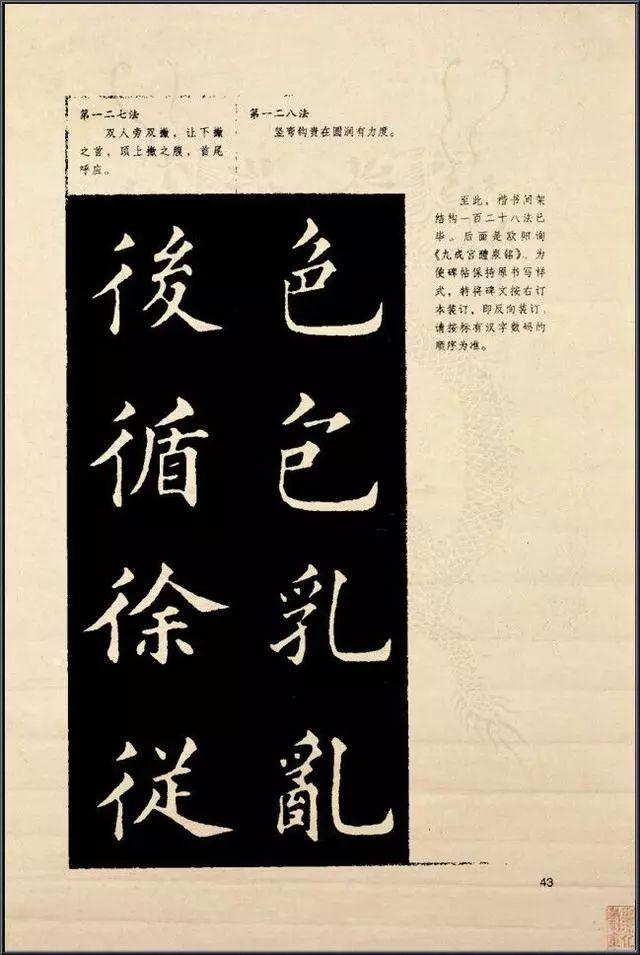 第一二七法
双人旁双撇，让下撇
之首，顶上撇之腹，首尾
呼应。
第一二八法
竖弯钩贵在圆润有力度。
後
循
徐
從
色
包
乳
亂
至此，楷书间架
结构一百二十八法已
毕。后面是欧阳询
《九成宫醴泉铭》。为
使碑帖保持原书写样
式，特将碑文按右订
本装订，即反向装订，
请按标有汉字数码的
顺序为准。
43